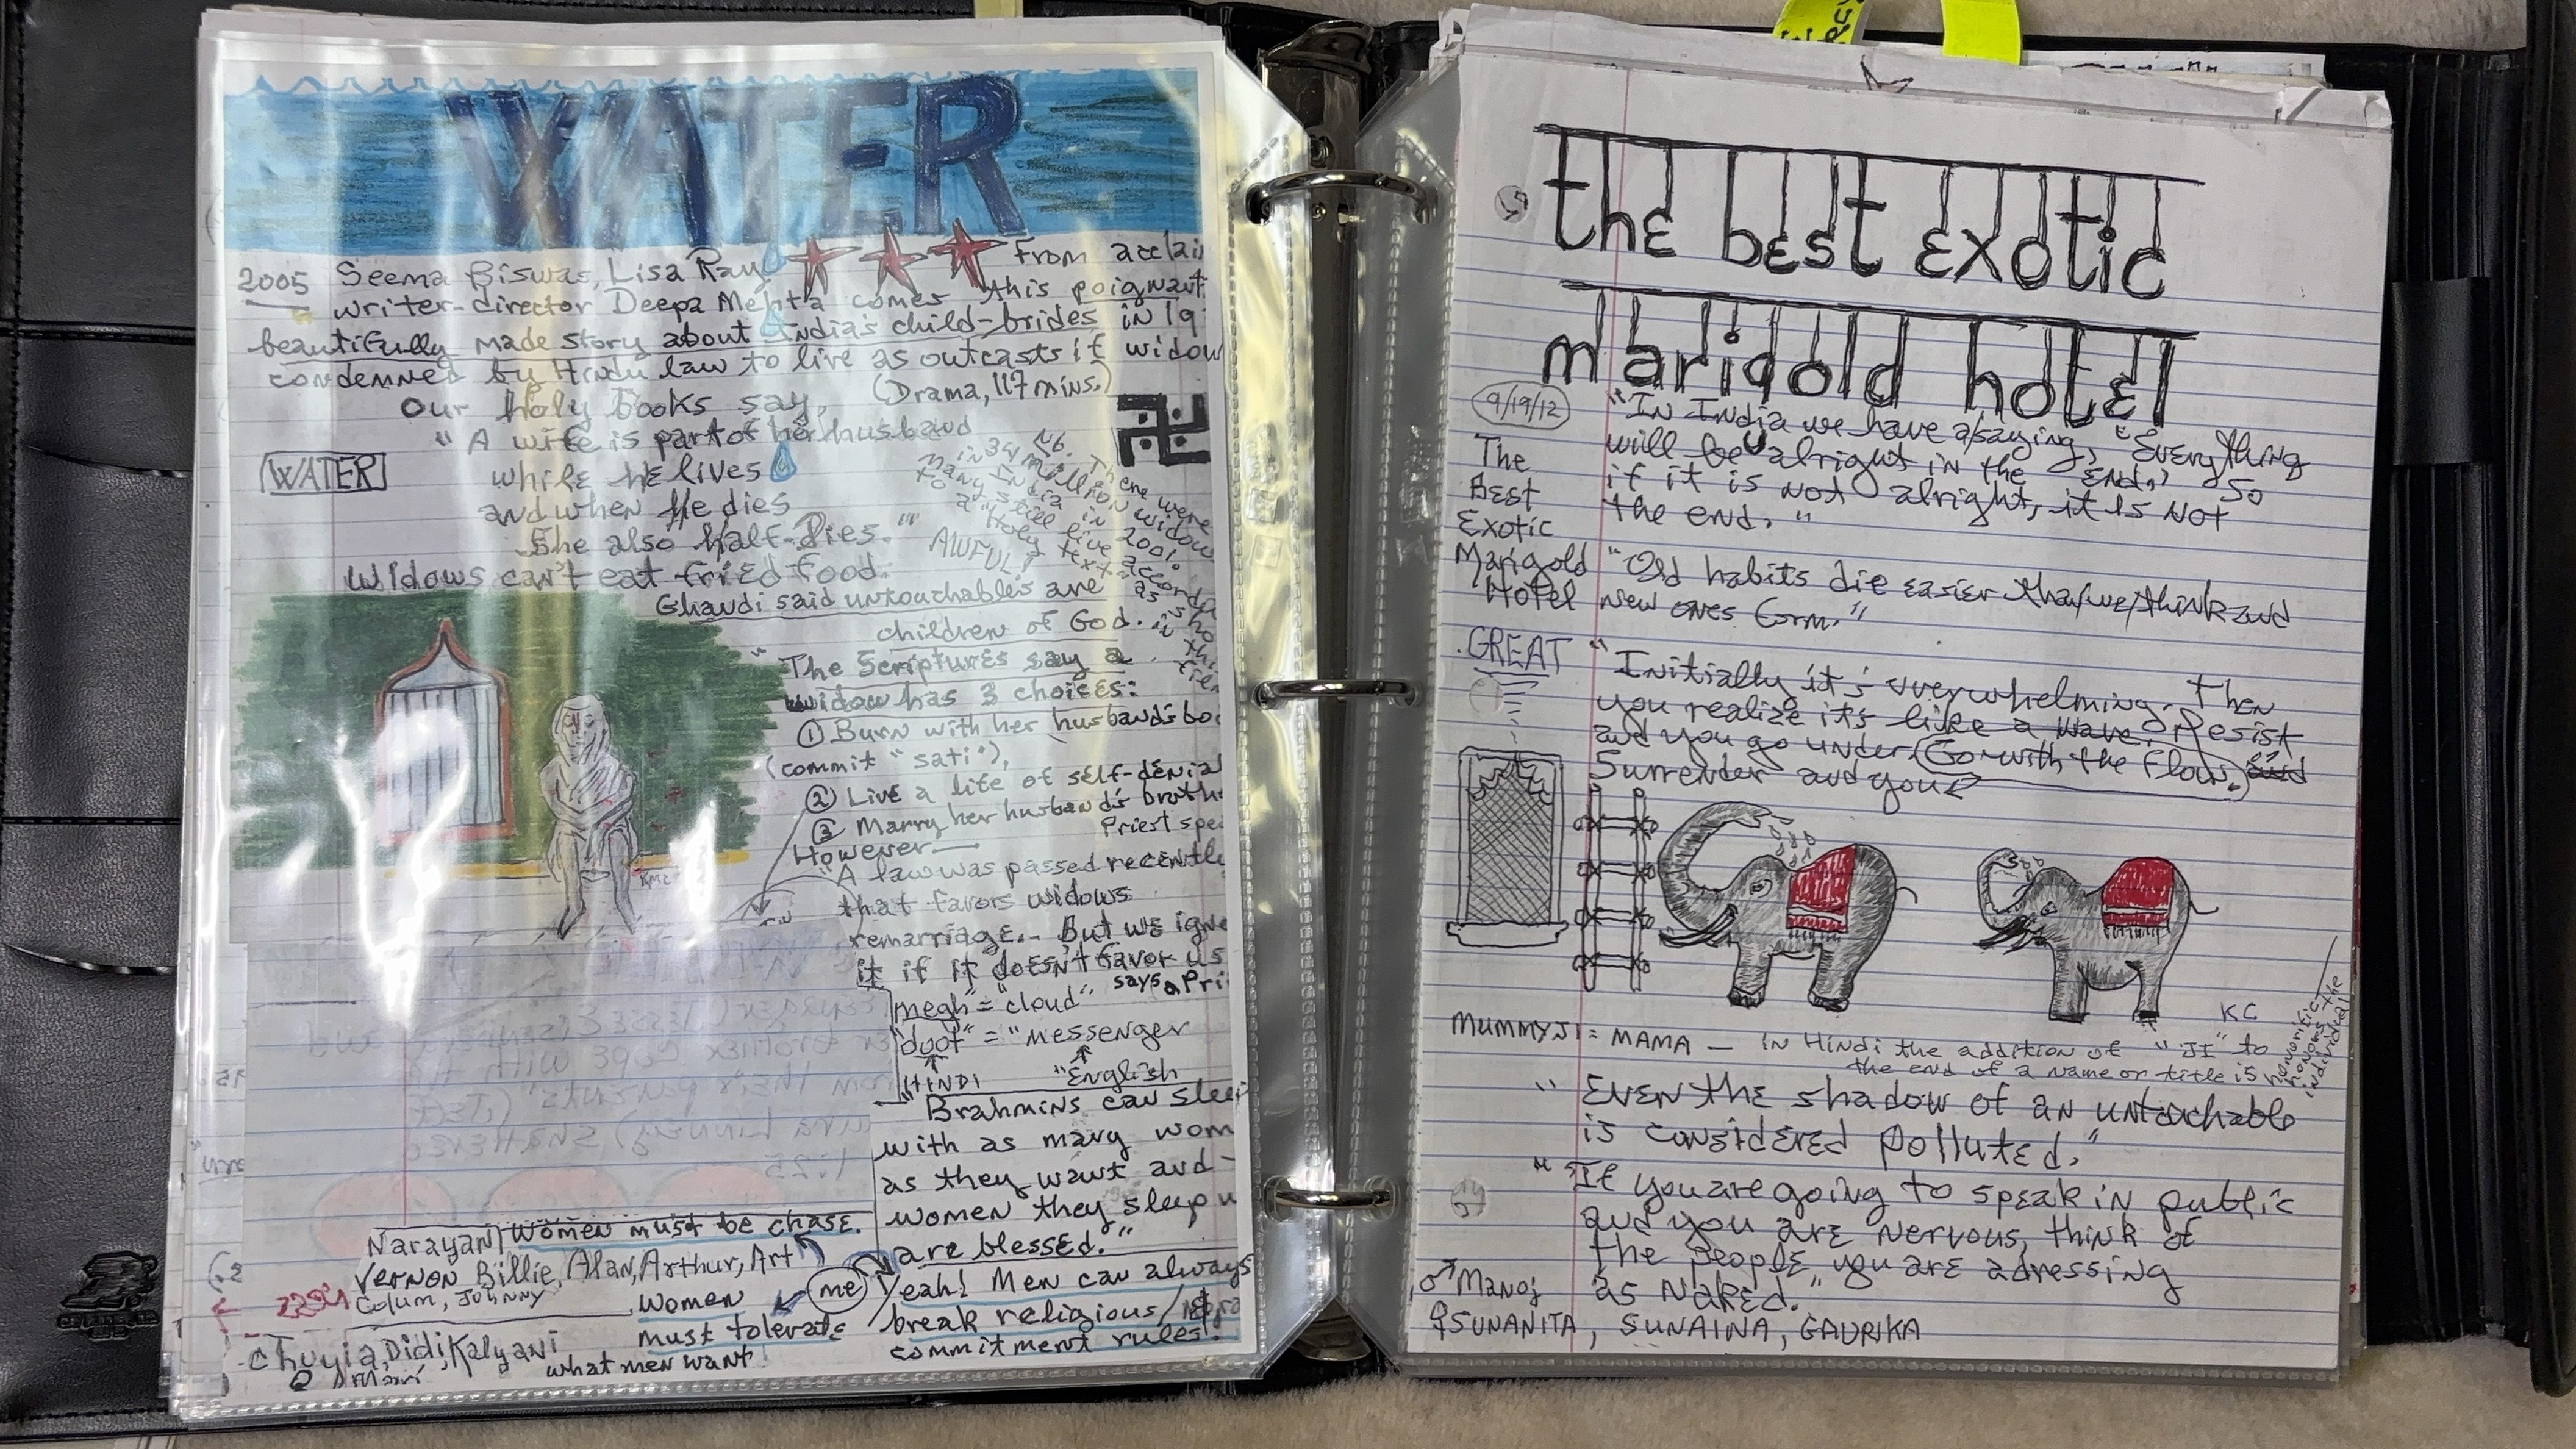 WATER
2005 Seema Biswas, Lisa Ray From acclai
writer-director Deepa Mehta comes this poignant
beautifully made story about India's child-brides in 19
condemned by Hindu law to live as outcasts if widow
(Drama, 117 mins.)
Our holy books say,
"A wife is part of her husband
while he lives
WATER
and when He dies
She also half-Dies."
NB. There were
in 34 million widow
India in 2001.
Many still live accordi
to a "Holy text" as sho
in thi
film
AWFUL!
Widows can't eat fried food.
Ghandi said untouchables are
children of God.
"The Scriptures say a
widow has 3 choices:
① Burn with her husband's bo
(commit "sati"),
② Live a life of self-denial
③ Marry her husband's broth
Priest spe
However—
"A law was passed recently
that favors widows
remarriage... But we igno
it if it doesn't favor us
says a Pri
"megh" = "cloud"
"doot" = "messenger
HINDI "English
"Brahmins can slee
with as many wom
as they want and
women they sleep w
are blessed."
Narayan Women must be chase.
Vernon Billie, Alan, Arthur, Art
Colum, Johnny
me
Yeah! Men can always
break religious/
commitment rules.
Women
must tolerate
what men want
Chuyia, Didi, Kalyani
KMC
the best exotic
marigold hotel
9/19/12
The
Best
Exotic
Marigold
Hotel
GREAT
"In India we have a saying, "Everything
will be alright in the end," So
if it is not alright, it is not
the end."
"Old habits die easier than we think and
new ones form."
"Initially it's overwhelming. Then
you realize it's like a wave. Resist
and you go under. Go with the flow. and
Surrender and you
KC
MUMMYJI = MAMA — in Hindi the addition of "JI" to
the end of a name or title is honorific/
honors the
individual
"Even the shadow of an untouchable
is considered polluted."
"If you are going to speak in public
and you are nervous, think of
the people you are adressing
as naked."
♂ Manoj
♀ SUNANITA, SUNAINA, GAURIKA